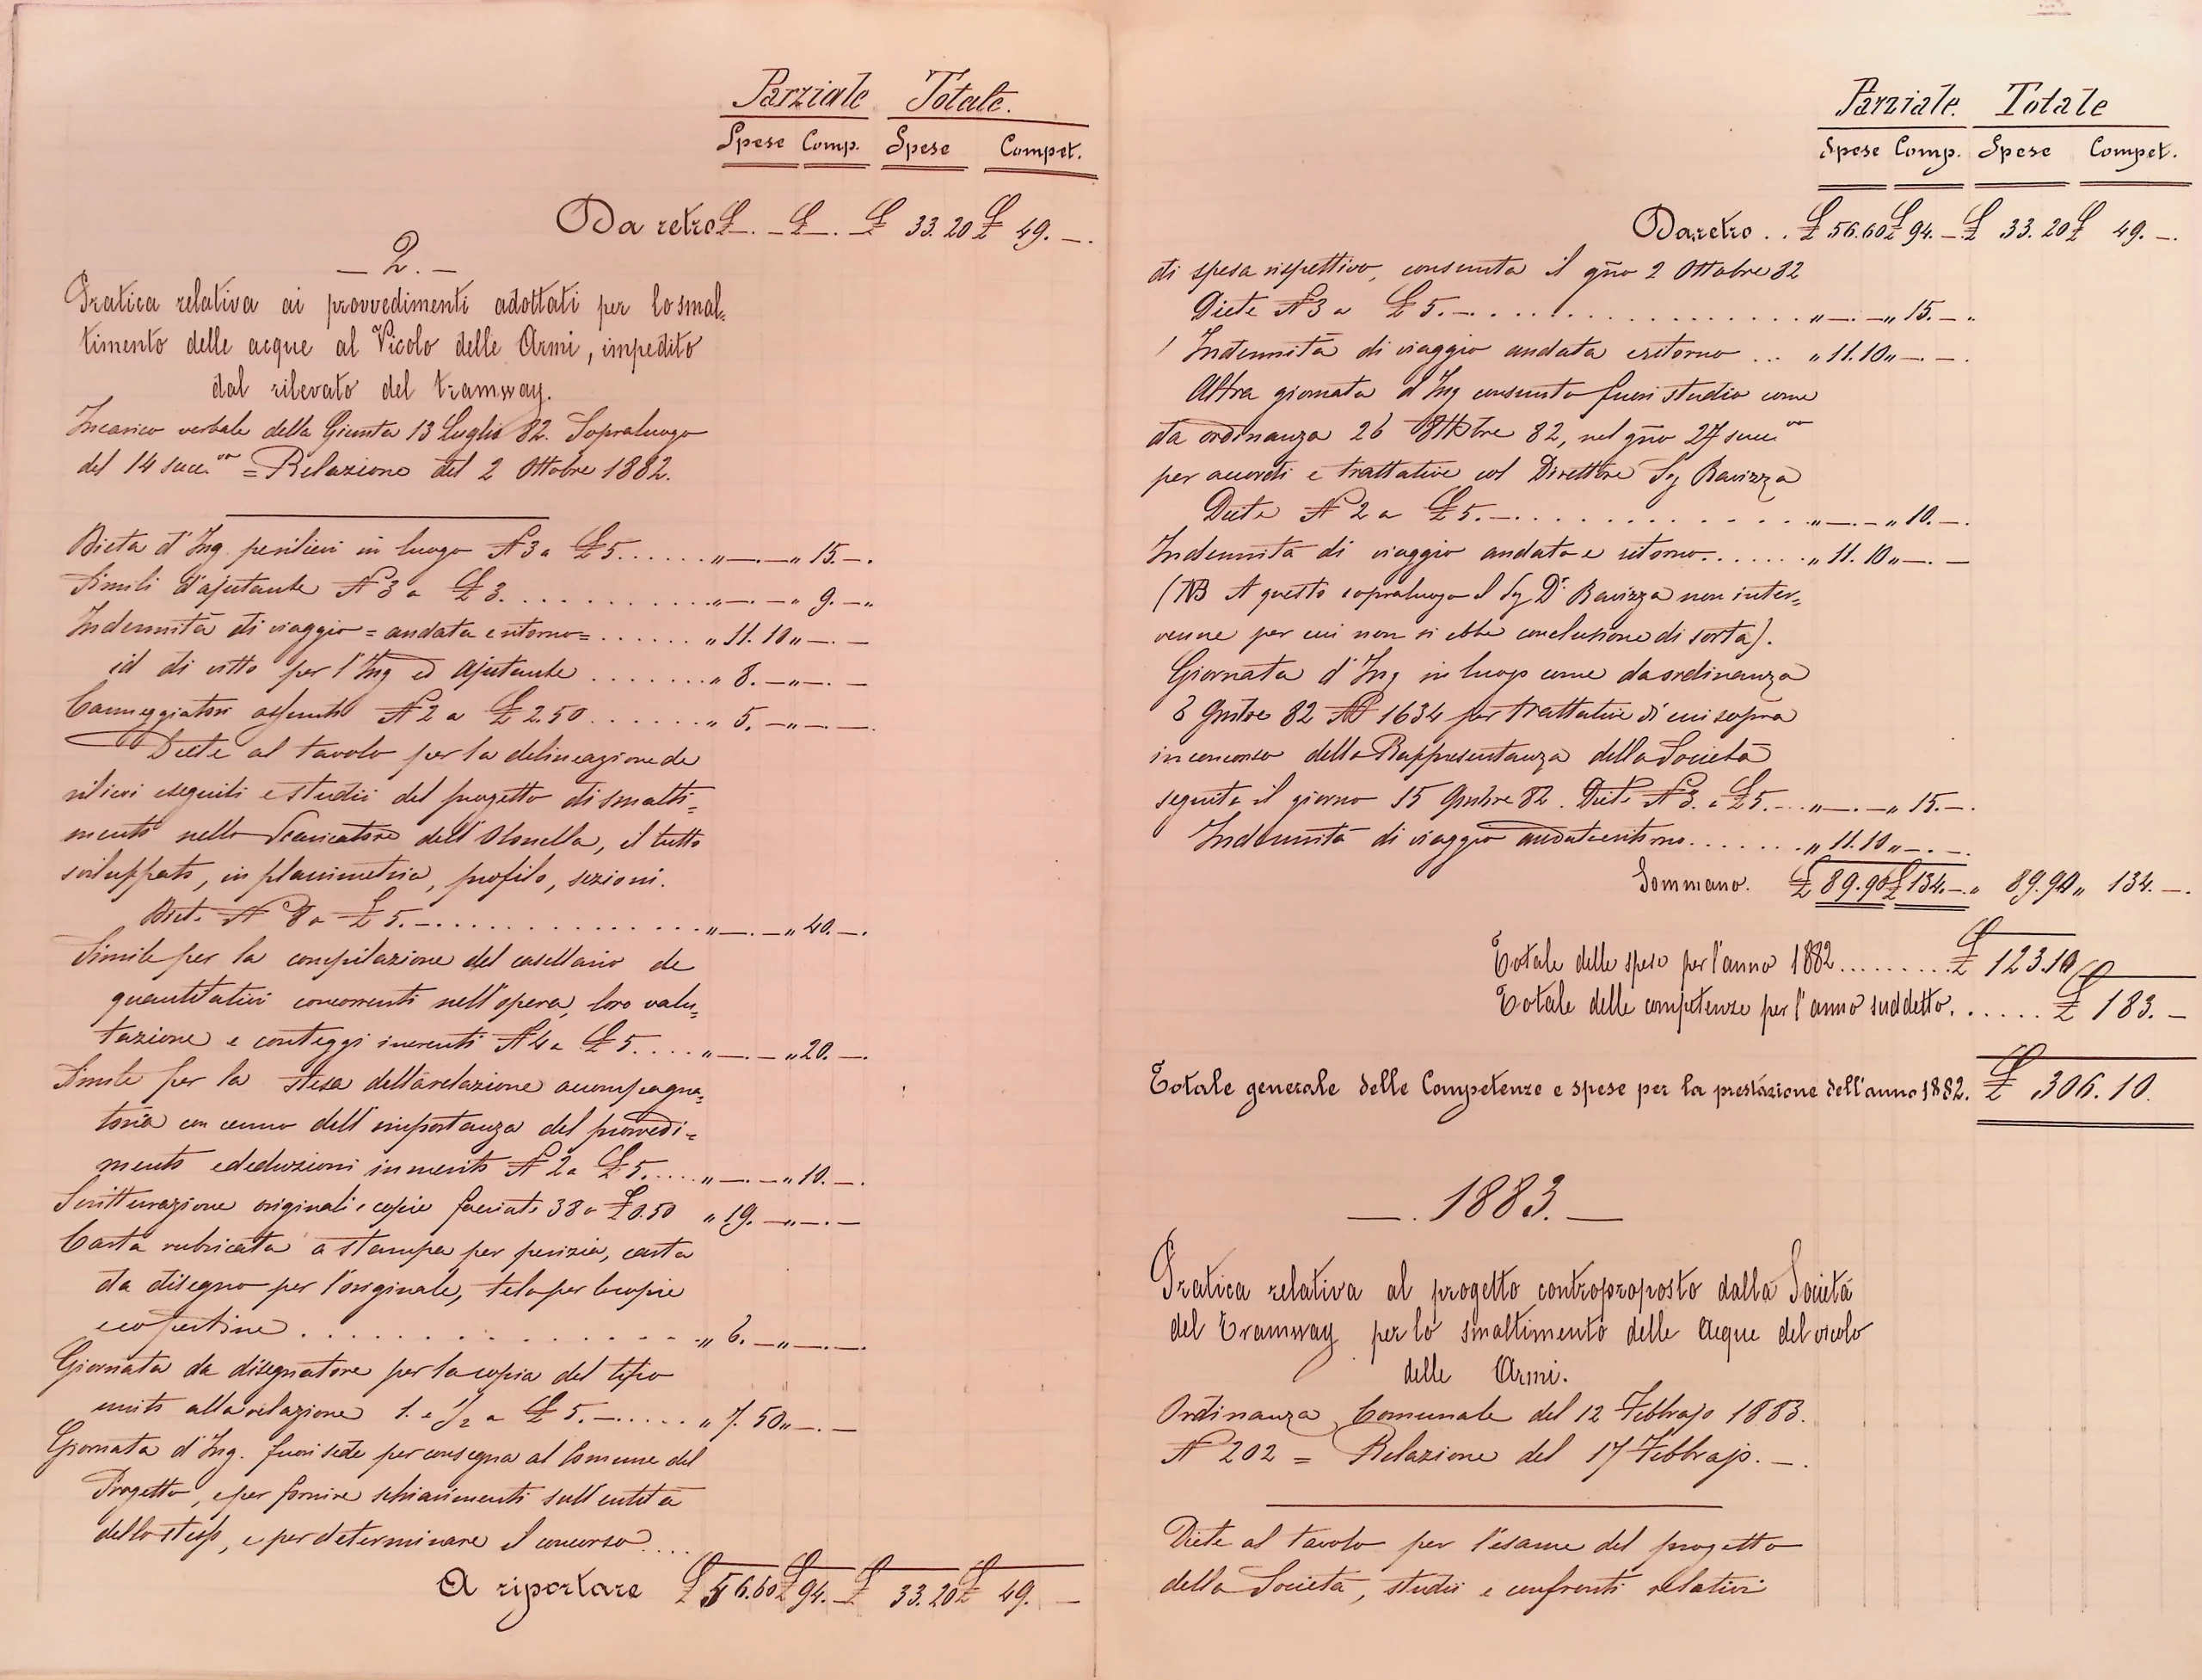 Parziale Totale.
Spese Comp. Spese Compet.
Da retro £ —. — £ —. £ 33.20 £ 49. —.
— 2. —
Pratica relativa ai provvedimenti adottati per lo smal=
timento delle acque al Vicolo delle Armi, impedito
dal rilevato del tramway.
Incarico verbale della Giunta 13 Luglio 82. Sopraluogo
del 14 succ.vo = Relazione del 2 Ottobre 1882.
Dieta d'Ing. per rilievi in luogo N 3 a £ 5. . . . . . " —. — " 15. —.
Simili d'ajutante N 3 a £ 3. . . . . . . . . . . " —. — " 9. — "
Indennità di viaggio = andata e ritorno = . . . . . . " 11. 10 " —. —
id di vitto per l'Ing ed Ajutante . . . . . . . " 8. — " —. —
Canneggiatori assunti N 2 a £ 2.50 . . . . . . " 5. — " —. —
Diete al tavolo per la delineazione de
rilievi eseguiti e studii del progetto di smalti=
mento nello Scaricatore dell'Olonella, il tutto
sviluppato, in planimetria, profilo, sezioni.
Diete N 8 a £ 5. — . . . . . . . . . . . . . . " —. — " 40. —.
Simile per la compilazione del casellario de
quantitativi concorrenti nell'opera, loro valu=
tazione e conteggi inerenti N 4 a £ 5. . . . " —. — " 20. —.
Simile per la stesa della relazione accompagna=
toria con cenno dell'importanza del provvedi=
mento e deduzioni in merito N 2 a £ 5. . . . . " —. — " 10. —.
Scritturazione originali e copie facciate 38 a £ 0.50 " 19. — " —. —
Carta rubricata a stampa per perizia, carta
da disegno per l'originale, tela per le copie
e copertine . . . . . . . . . . . . . . . . " 6. — " —. —.
Giornata da disegnatore per la copia del tipo
unito alla relazione 1. e 1/2 a £ 5. — . . . . . " 7. 50 " —. —
Giornata d'Ing. fuori sede per consegna al Comune del
Progetto, e per fornire schiarimenti sull'entità
dello stesso, e per determinare il concorso . . . .
A riportare £ 56.60 £ 94. — £ 33.20 £ 49. —
Parziale. Totale
Spese Comp. Spese Compet.
Da retro . . £ 56.60 £ 94. — £ 33.20 £ 49. —.
di spesa rispettivo, consunta il gno 2 Ottobre 82
Diete N 3 a £ 5. — . . . . . . . . . . . . . . . " —. — " 15. — "
/ Indennità di viaggio andata e ritorno . . . " 11. 10 " —. —.
Altra giornata d'Ing consunta fuori studio come
da ordinanza 26 8ttbre 82, nel gno 27 succ.vo
per accordi e trattative col Direttore Sig Ravizza
Diete N 2 a £ 5. — . . . . . . . . . . . . . " —. — " 10. —.
Indennità di viaggio andata e ritorno. . . . . . . " 11. 10 " —. —
(NB A questo sopraluogo il Sig Dr. Ravizza non inter=
venne per cui non si ebbe conclusione di sorta).
Giornata d'Ing in luogo come da ordinanza
8 9mbre 82 N 1634 per trattative di cui sopra
in concorso della Rappresentanza della Società
seguita il giorno 15 9mbre 82. Diete N 3. a £ 5. . . . " —. — " 15. —.
Indennità di viaggio andata e ritorno. . . . . . . " 11. 10 " —. —.
Sommano. £ 89.90 £ 134. — " 89.90 " 134. —.
Totale delle spese per l'anno 1882 . . . . . . . . . £ 123.10
Totale delle competenze per l'anno suddetto. . . . . . . £ 183. —
Totale generale delle Competenze e spese per la prestazione dell'anno 1882. £ 306. 10.
—. 1883. —
Pratica relativa al progetto controproposto dalla Società
del Tramway per lo smaltimento delle Acque del vicolo
delle Armi.
Ordinanza Comunale del 12 Febbrajo 1883.
N 202 = Relazione del 17 Febbrajo. —.
Diete al tavolo per l'esame del progetto
della Società, studii e confronti relativi